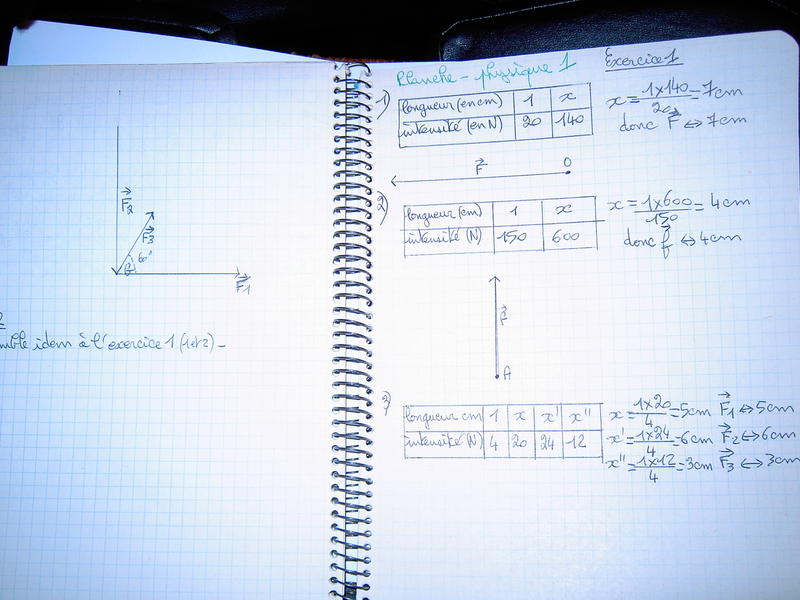 F₂
F₃
60°
F₁
idem à l'exercice 1 (1et2)_
Planche - physique 1
Exercice 1
1)
longueur (en cm) 1 x
intensité (en N) 20 140
x = 1x140/20 = 7cm
donc F ⇔ 7cm
F O
2)
longueur (cm) 1 x
intensité (N) 150 600
x = 1x600/150 = 4cm
donc f ⇔ 4cm
A
3)
longueur cm 1 x x' x''
intensité (N) 4 20 24 12
x = 1x20/4 = 5cm F₁ ⇔ 5cm
x' = 1x24/4 = 6cm F₂ ⇔ 6cm
x'' = 1x12/4 = 3cm F₃ ⇔ 3cm